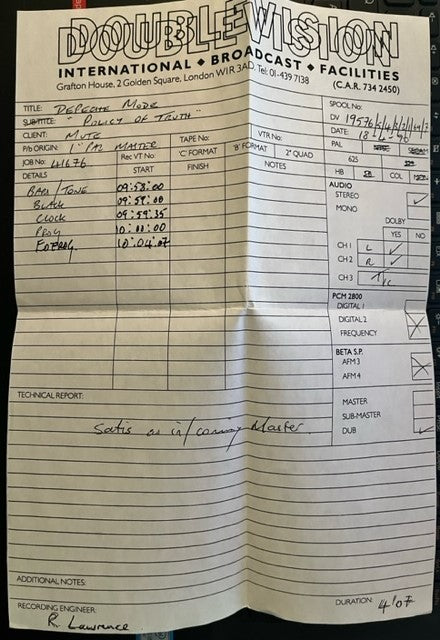 DOUBLEVISION
INTERNATIONAL ◆ BROADCAST ◆ FACILITIES
Grafton House, 2 Golden Square, London W1R 3AD. Tel: 01-439 7138
(C.A.R. 734 2450)
TITLE: DEPECHE MODE
SUBTITLE: "POLICY OF TRUTH"
CLIENT: MUTE
P/b ORIGIN: 1" PAL MASTER
JOB No: 41676
SPOOL No:
DV 19576
DATE: 18
TAPE No:
VTR No:
PAL
625
'C' FORMAT
'B' FORMAT
2" QUAD
HB
COL
DETAILS
Rec VT No.
START
FINISH
NOTES
BARS/TONE 09:58:00
BLACK 09:59:00
CLOCK 09:59:35
PROG 10:00:00
ENDPROG 10:04:07
AUDIO
STEREO
MONO
DOLBY
YES NO
CH 1 L
CH 2 R
CH 3 T/C
PCM 2800
DIGITAL 1
DIGITAL 2
FREQUENCY
BETA S.P.
AFM 3
AFM 4
MASTER
SUB-MASTER
DUB
TECHNICAL REPORT:
Satis as in/coming Master.
ADDITIONAL NOTES:
RECORDING ENGINEER:
R Lawrence
DURATION: 4'07